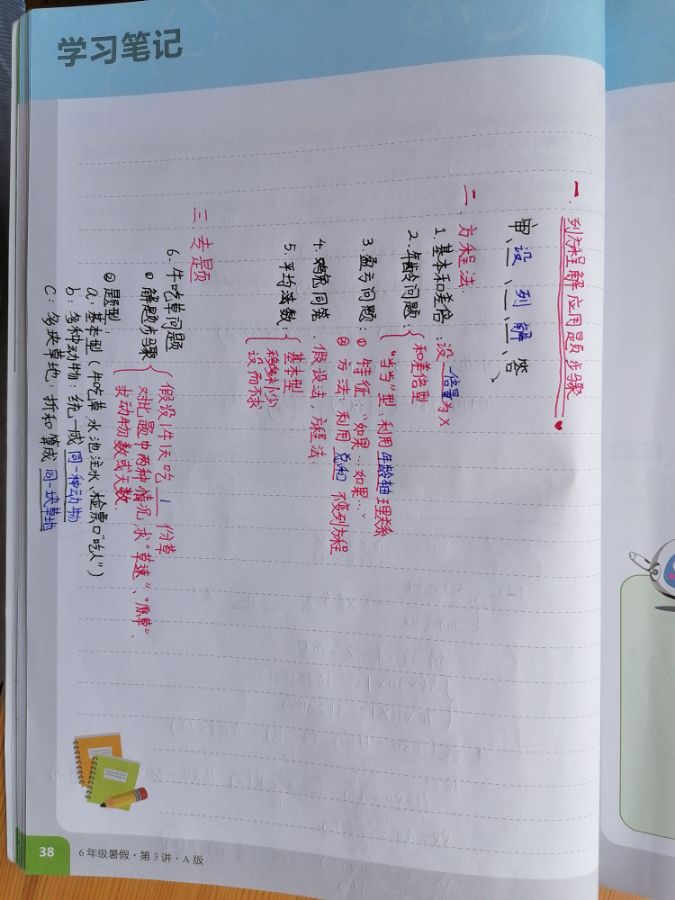 学习笔记
一. 列方程解应用题步骤
审、设、列、解、答
二、方程法.
1. 基本和差倍:设一倍量为x
和差倍型
2. 年龄问题:
"当当"型:利用年龄轴理关系
3. 盈亏问题:① 特征:"如果…如果…"
② 方法:利用总和不变列方程
4. 鸡兔同笼:假设法,方程法.
5. 平均漫数:
基本型
移多补少
设而不求
三. 专题
6. 牛吃草问题
① 解题步骤
假设1牛1天吃 1 份草
对比题中两种情况,求"草速"、"原草".
求动物数或天数.
② 题型:
a:基本型(牛吃草,水池注水,检票口"吃人")
b:多种动物:统一成同一种动物
c:多块草地:折和算成同一块草地
38
6年级暑假·第3讲·A版